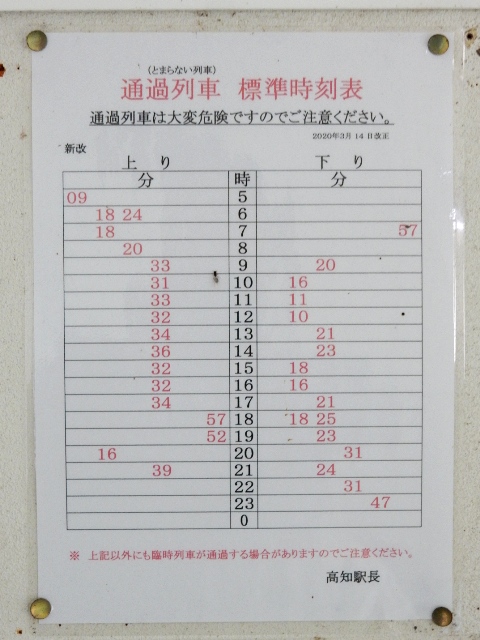 (とまらない列車)
通過列車 標準時刻表
通過列車は大変危険ですのでご注意ください。
2020年3月14日改正
新改
上り 下り
分 時 分
09 5
18 24 6
18 7 57
20 8
33 9 20
31 10 16
33 11 11
32 12 10
34 13 21
36 14 23
32 15 18
32 16 16
34 17 21
57 18 18 25
52 19 23
16 20 31
39 21 24
22 31
23 47
0
※ 上記以外にも臨時列車が通過する場合がありますのでご注意ください。
高知駅長